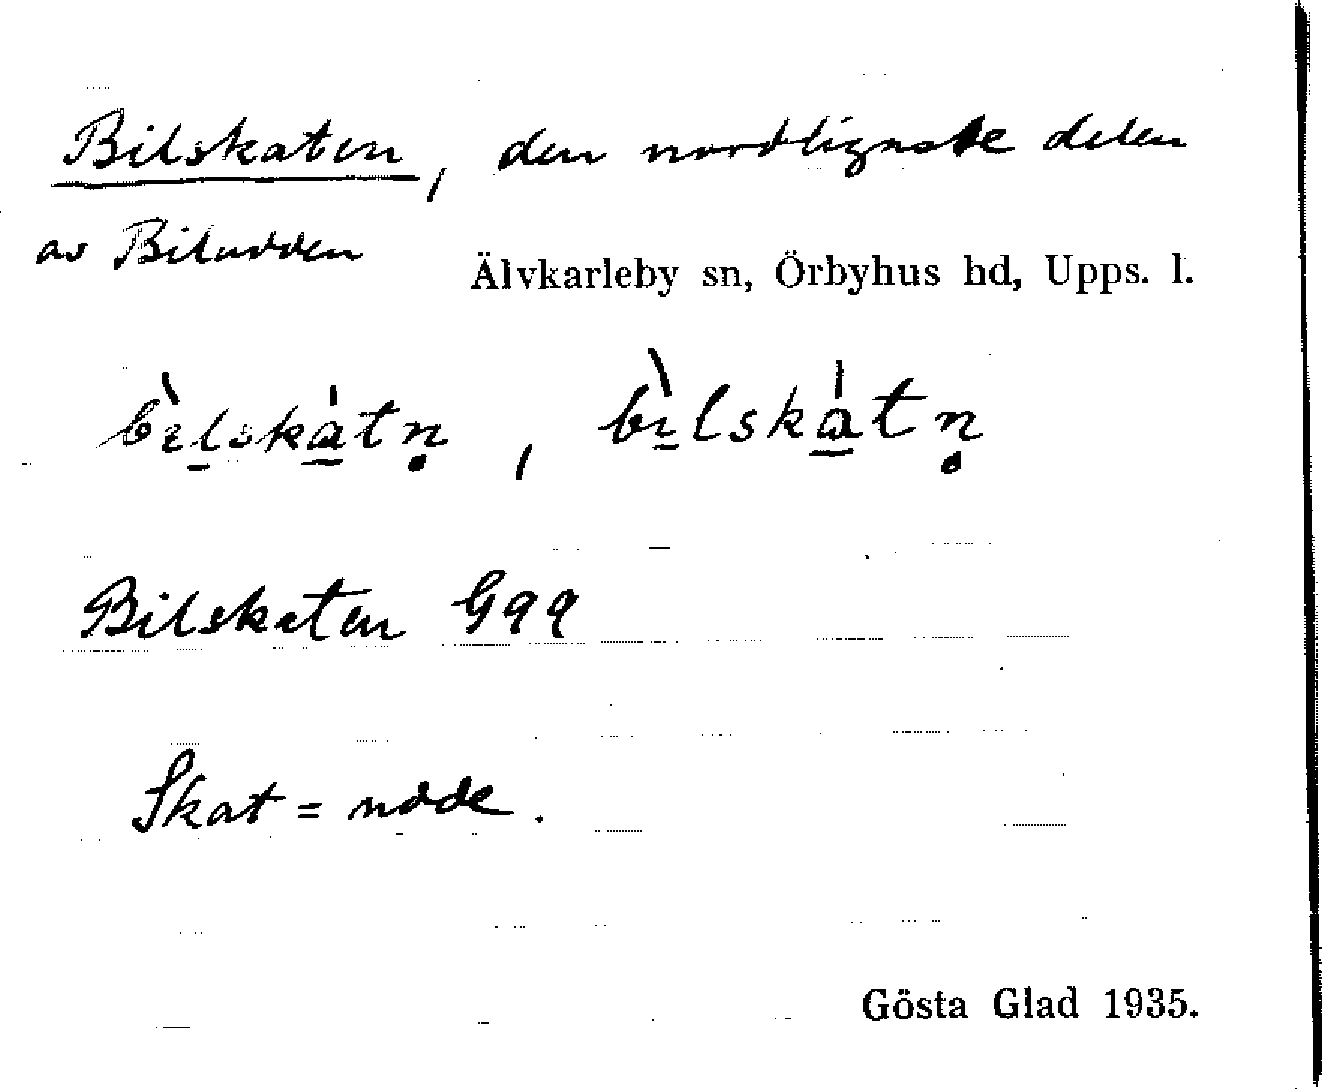 Bilskaten, den nordligaste delen
av Biludden
Älvkarleby sn, Örbyhus hd, Upps. l.
bı̀lskȧtn̥, bı̀lskȧtn̥
Bilskaten Gqq
Skat = udde.
Gösta Glad 1935.